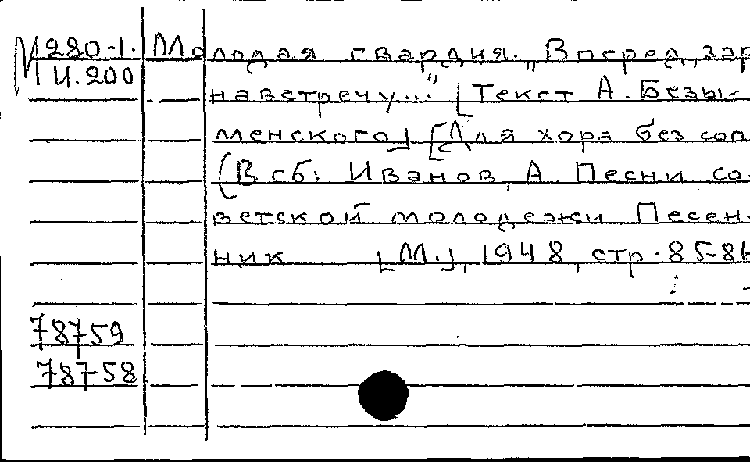 М280-1. Молодая гвардия. "Вперед, зар
И.200
навстречу..." [Текст А. Безы-
менского] [Для хора без соп
(В сб: Иванов, А. Песни со-
ветской молодежи Песен-
ник [М.], 1948, стр. 85-86
78759
78758